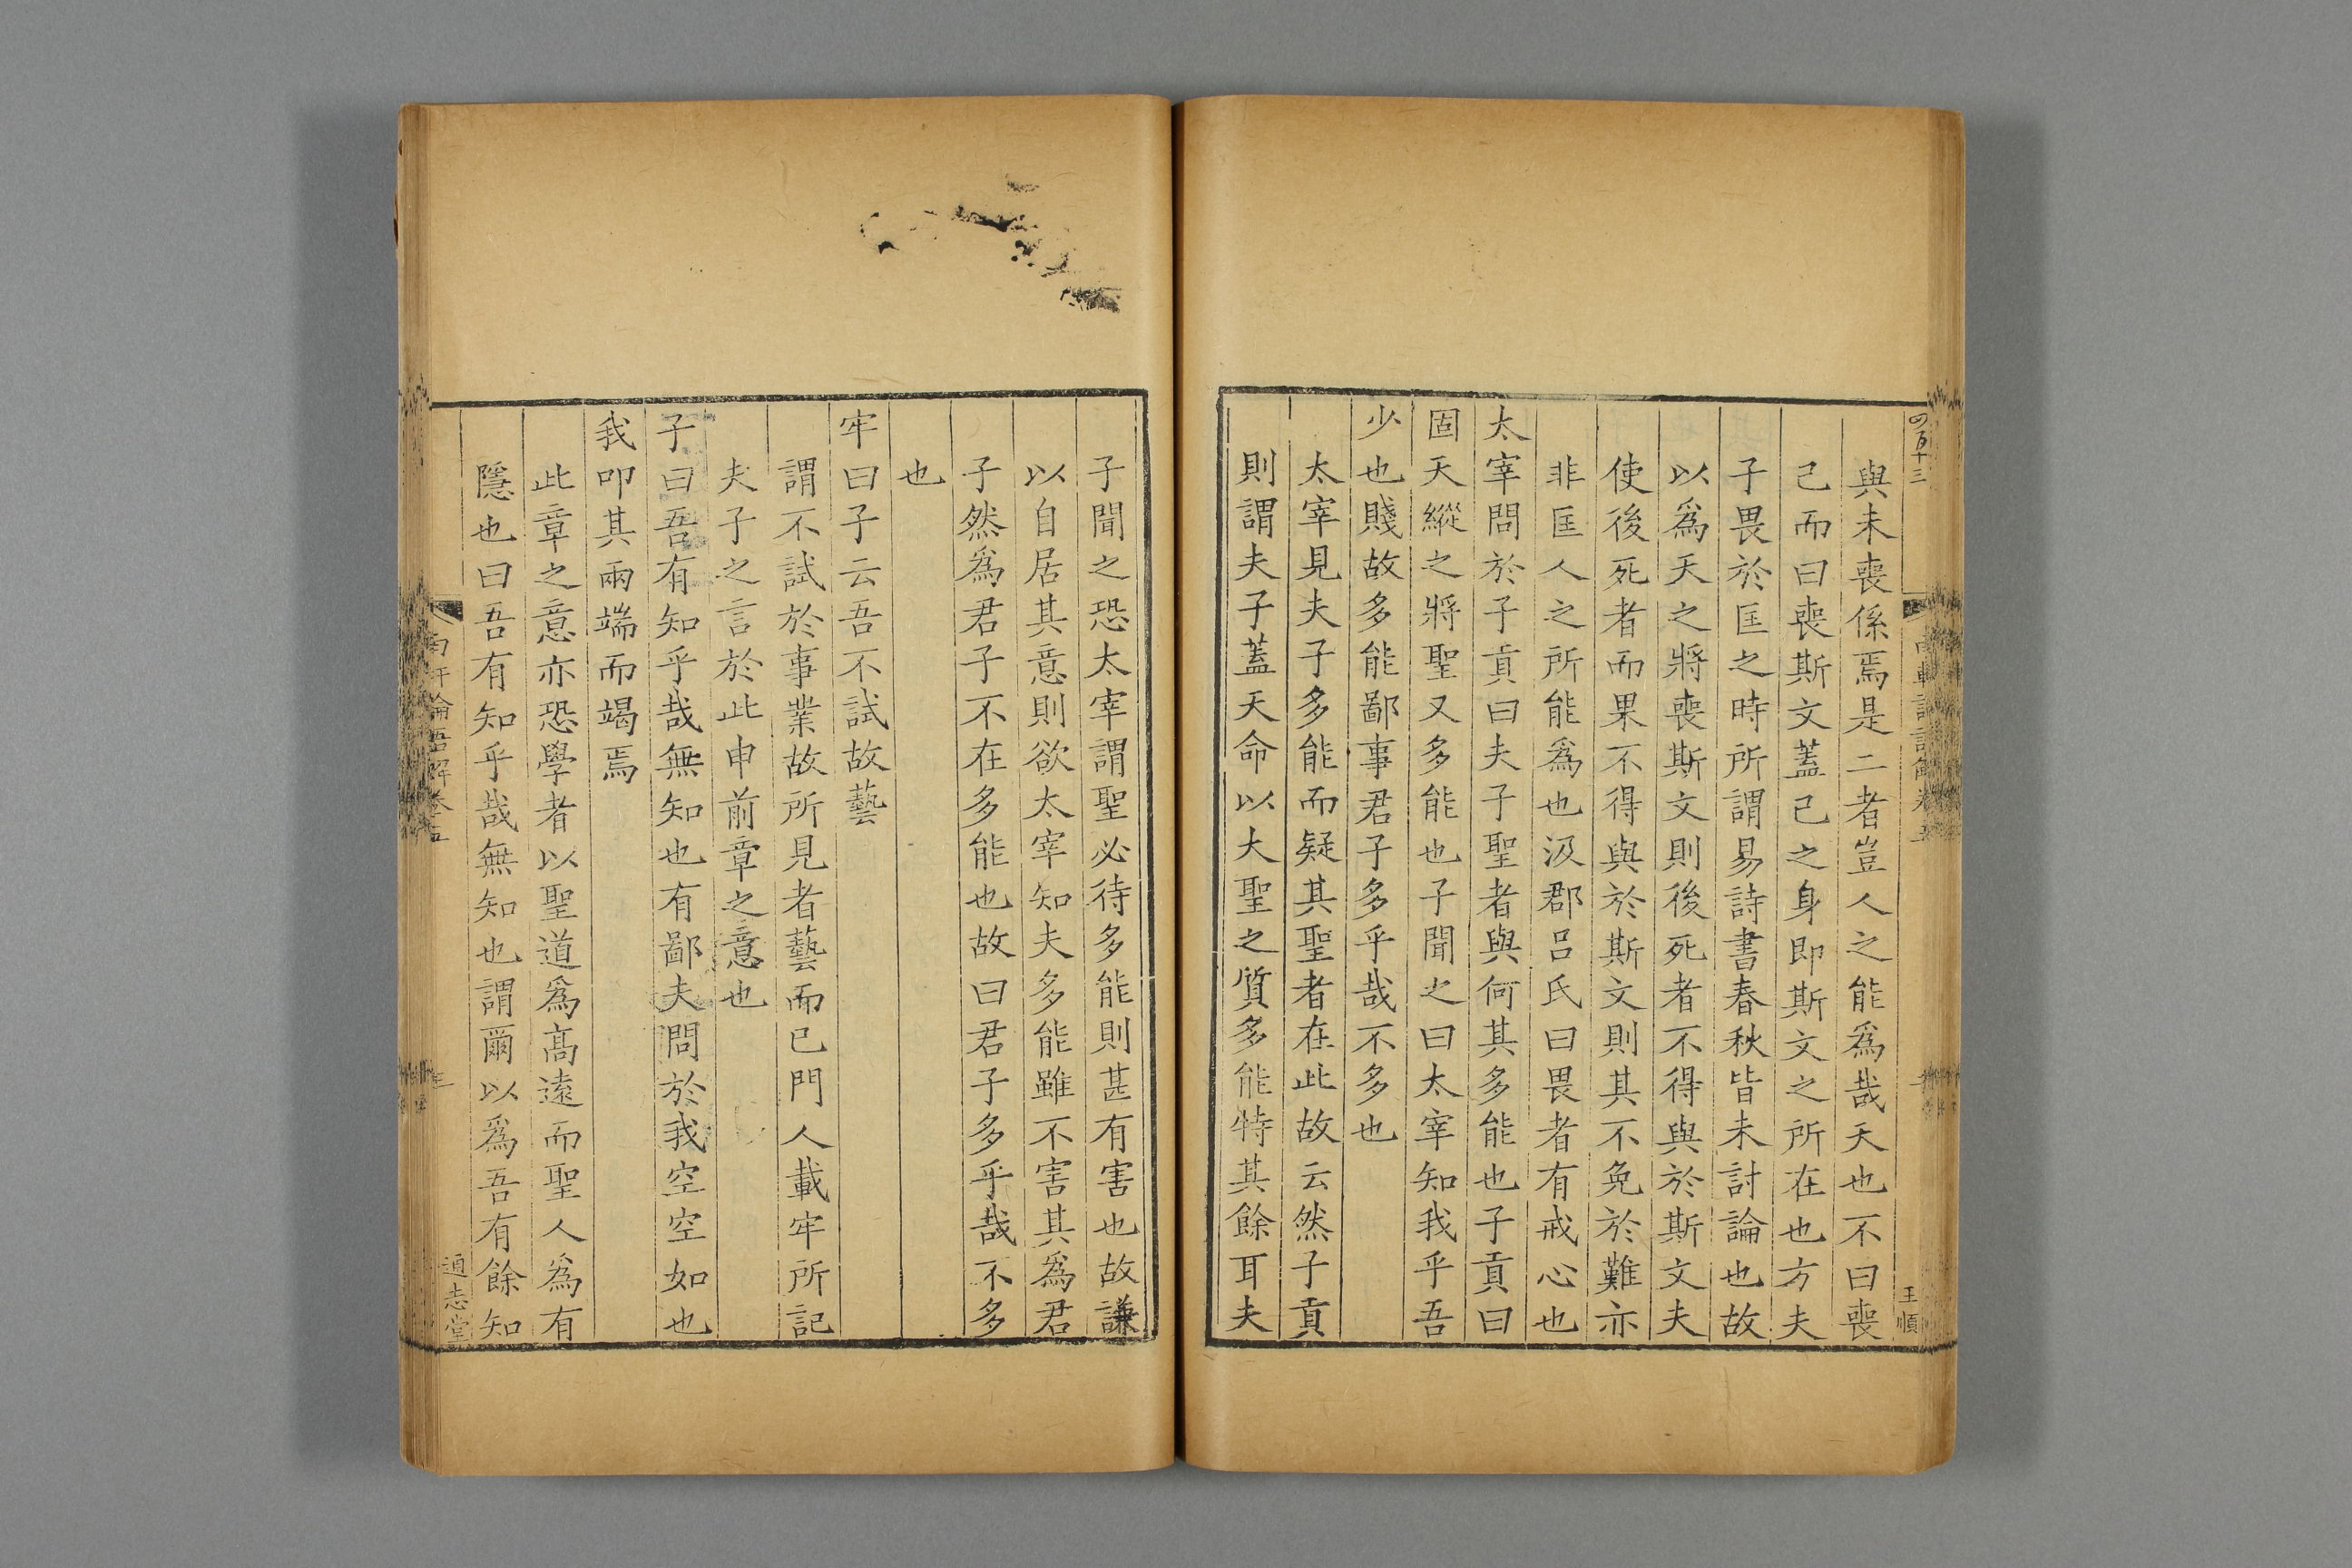 四百十三
王順
與未喪係焉是二者豈人之能爲哉天也不曰喪
己而曰喪斯文蓋己之身即斯文之所在也方夫
子畏於匡之時所謂易詩書春秋皆未討論也故
以爲天之將喪斯文則後死者不得與於斯文夫
使後死者而果不得與於斯文則其不免於難亦
非匡人之所能爲也汲郡呂氏曰畏者有戒心也
太宰問於子貢曰夫子聖者與何其多能也子貢曰
固天縱之將聖又多能也子聞之曰太宰知我乎吾
少也賤故多能鄙事君子多乎哉不多也
太宰見夫子多能而疑其聖者在此故云然子貢
則謂夫子蓋天命以大聖之質多能特其餘耳夫
子聞之恐太宰謂聖必待多能則甚有害也故謙
以自居其意則欲太宰知夫多能雖不害其爲君
子然爲君子不在多能也故曰君子多乎哉不多
也
牢曰子云吾不試故藝
謂不試於事業故所見者藝而已門人載牢所記
夫子之言於此申前章之意也
子曰吾有知乎哉無知也有鄙夫問於我空空如也
我叩其兩端而竭焉
此章之意亦恐學者以聖道爲高遠而聖人爲有
隱也曰吾有知乎哉無知也謂爾以爲吾有餘知
論語解卷五
通志堂